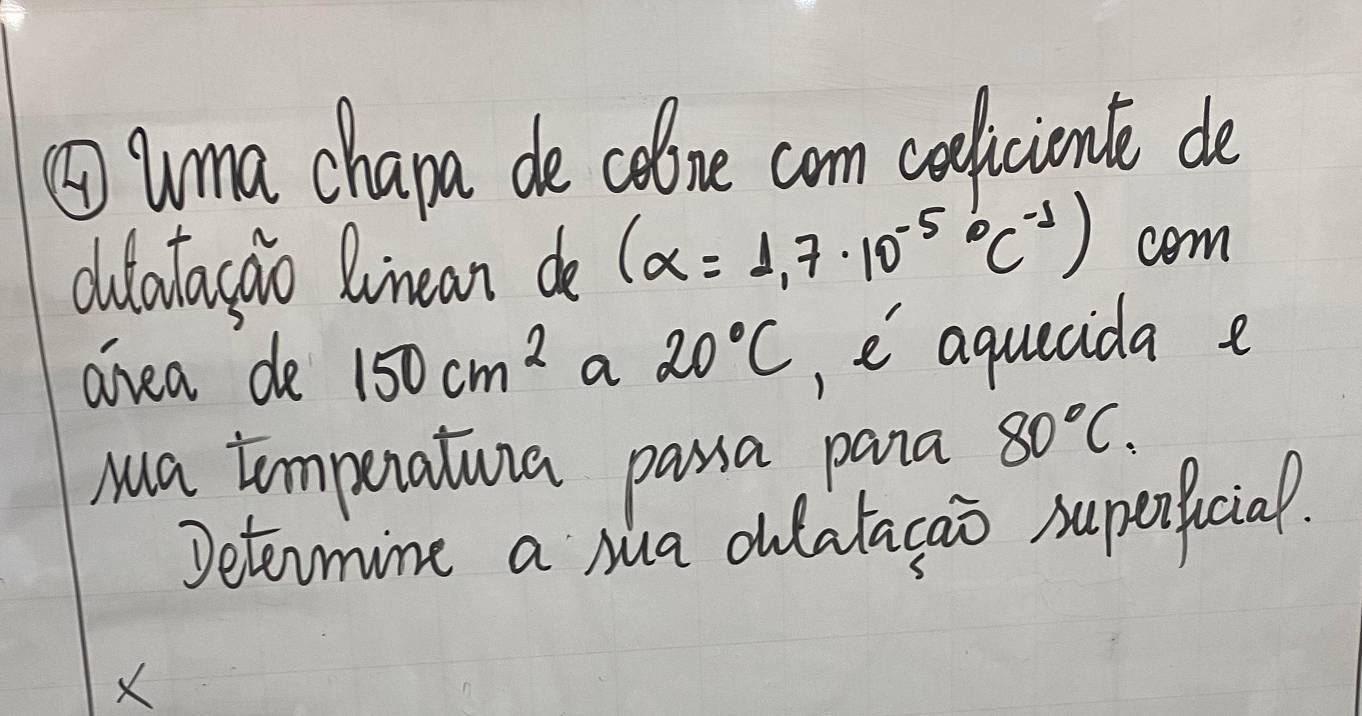 ④ Uma chapa de cobre com coeficiente de
dilatação linear de (α = 1,7 · 10⁻⁵ °C⁻¹) com
área de 150 cm² a 20°C, é aquecida e
sua temperatura passa para 80°C.
Determine a sua dilatação superficial.
x